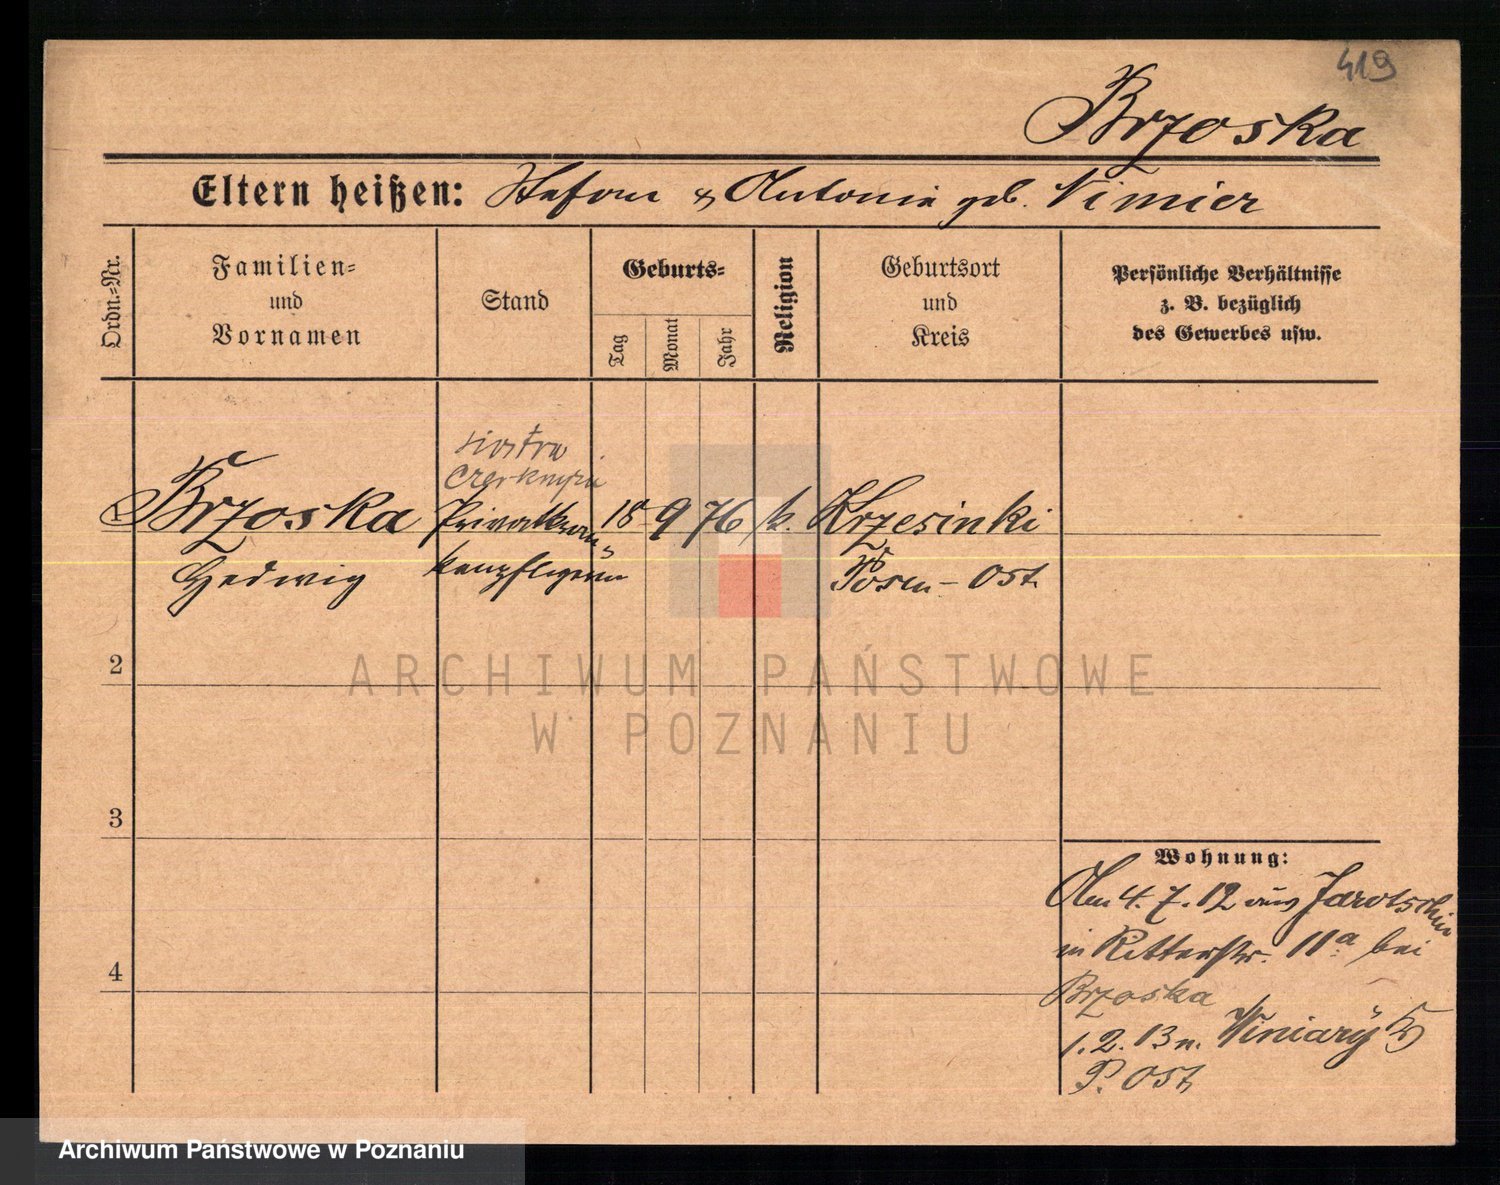 419
Brzoska
Eltern heißen: Stefan & Antonie geb. Nimier
Ordn.-Nr.
Familien-
und
Vornamen
Stand
Geburts-
Tag
Monat
Jahr
Religion
Geburtsort
und
Kreis
Persönliche Verhältnisse
z. B. bezüglich
des Gewerbes usw.
siostra
1 Brzoska Privatkran- 18 9 76 k. Krzesinki
Hedwig kenpflegerin Posen-Ost.
2
3
4
Wohnung:
Am 4. 7. 12 aus Jarotschin
in Ritterstr. 11a bei
Brzoska
1. 2. 13 n. Winiary
P. Ost
ARCHIWUM PAŃSTWOWE
W POZNANIU
Archiwum Państwowe w Poznaniu